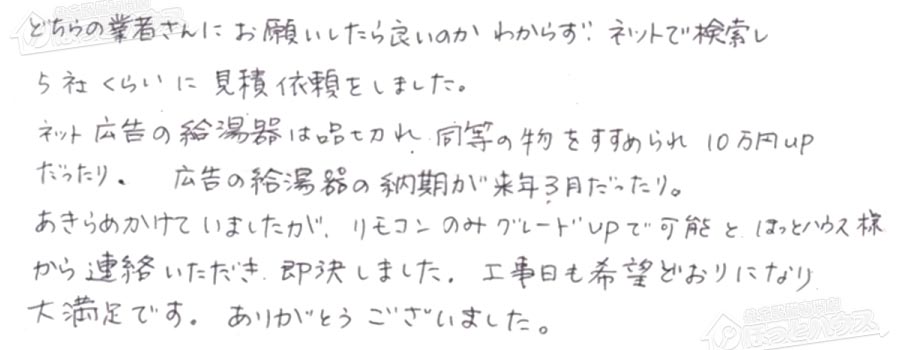 どちらの業者さんにお願いしたら良いのかわからず、ネットで検索し
5社くらいに見積依頼をしました。
ネット広告の給湯器は品切れ、同等の物をすすめられ10万円UP
だったり。広告の給湯器の納期が来年3月だったり。
あきらめかけていましたが、リモコンのみグレードUPで可能と、ほっとハウス様
から連絡いただき、即決しました。工事日も希望どおりになり
大満足です。ありがとうございました。
ほっとハウス